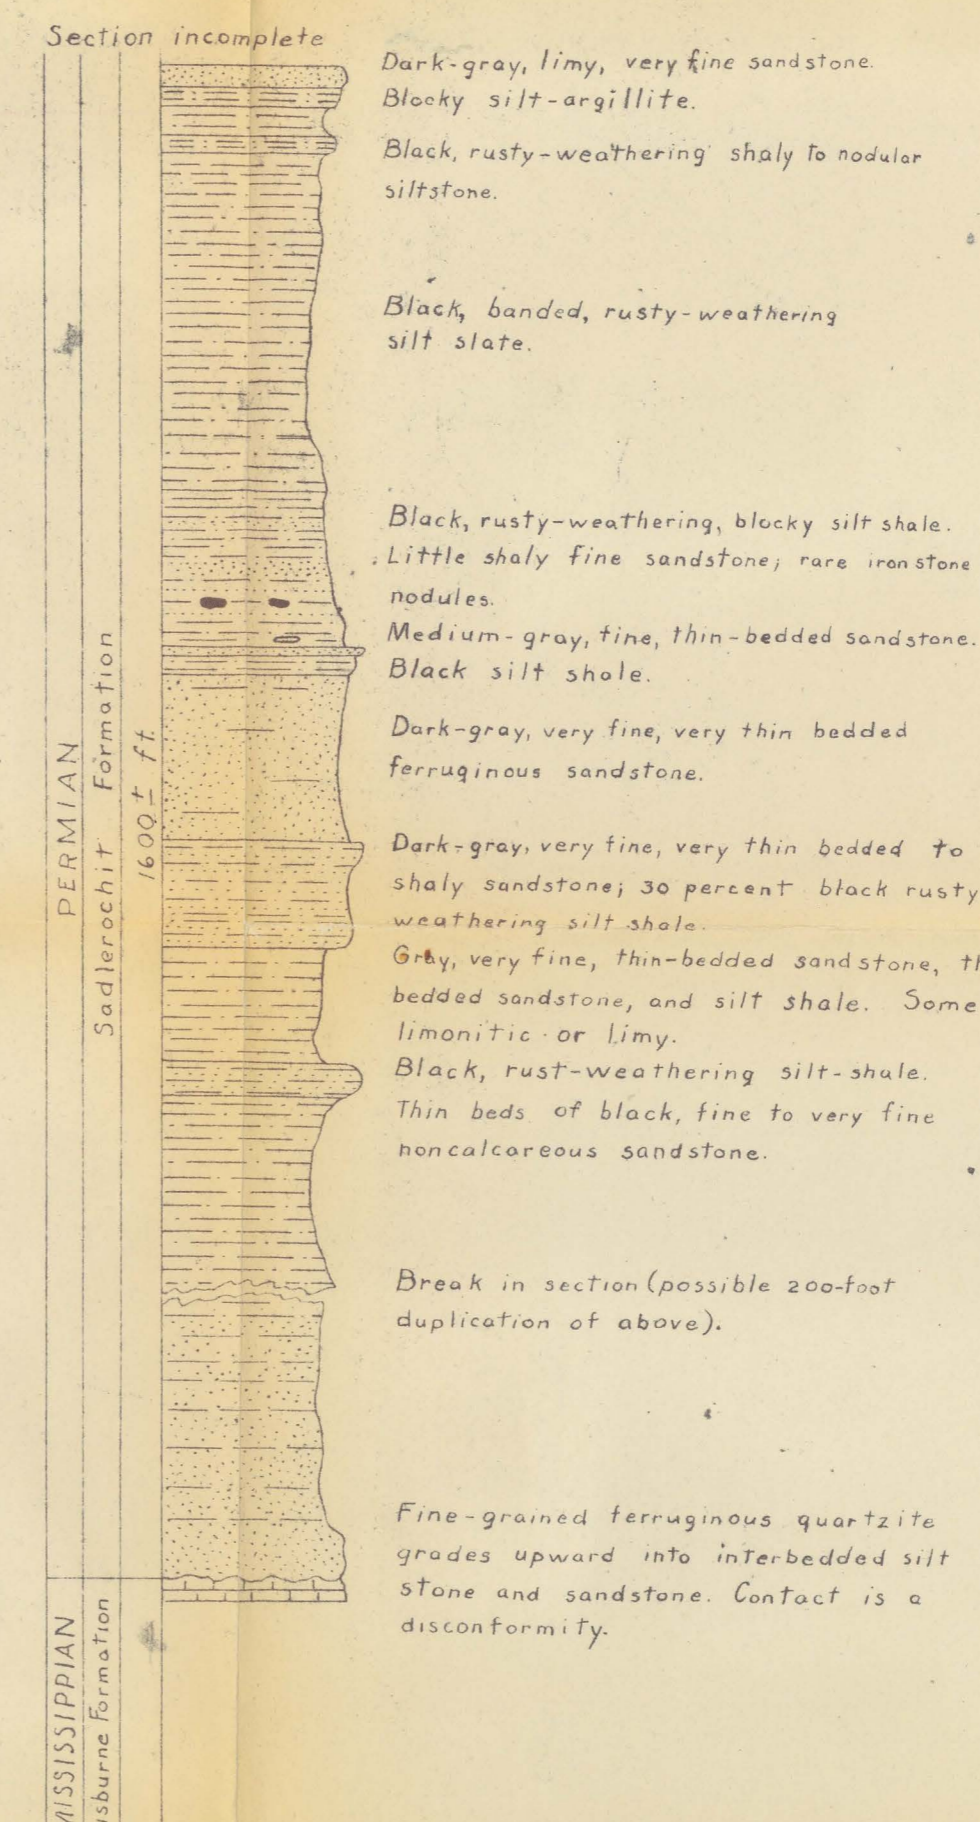 Section incomplete
Dark-gray, limy, very fine sandstone.
Blocky silt-argillite.
Black, rusty-weathering shaly to nodular
siltstone.
Black, banded, rusty-weathering
silt slate.
Black, rusty-weathering, blocky silt shale.
Little shaly fine sandstone; rare iron stone
nodules.
Medium-gray, fine, thin-bedded sandstone.
Black silt shale.
Dark-gray, very fine, very thin bedded
ferruginous sandstone.
Dark-gray, very fine, very thin bedded to
shaly sandstone; 30 percent black rusty
weathering silt shale.
Gray, very fine, thin-bedded sandstone,
bedded sandstone, and silt shale. Some
limonitic or limy.
Black, rust-weathering silt-shale.
Thin beds of black, fine to very fine
noncalcareous sandstone.
Break in section (possible 200-foot
duplication of above).
Fine-grained ferruginous quartzite
grades upward into interbedded silt
stone and sandstone. Contact is a
disconformity.
PERMIAN
Sadlerochit Formation
1600± ft.
MISSISSIPPIAN
sburne Formation